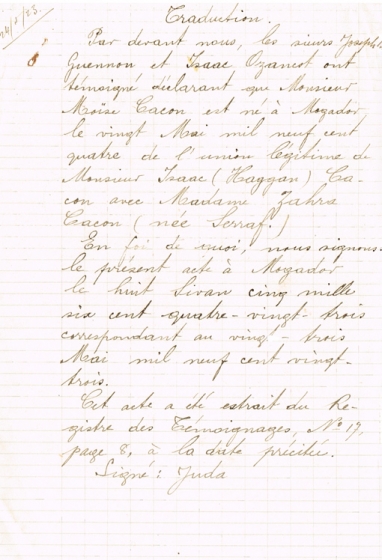 24/8/23.
Traduction.
Par devant nous, les sieurs Joseph
Guennon et Isaac Ozancot ont
témoigné déclarant que Monsieur
Moïse Cacon est né à Mogador,
le vingt Mai mil neuf cent
quatre de l'union légitime de
Monsieur Isaac (Haggan) Ca-
con avec Madame Zahra
Cacon (née Serraf.)
En foi de quoi, nous signons
le présent acte à Mogador
le huit Sivan cinq mille
six cent quatre-vingt-trois
correspondant au vingt-trois
Mai mil neuf cent vingt-
trois.
Cet acte a été extrait du Re-
gistre des Témoignages, No 17,
page 8, à la date précitée.
Signé: Juda